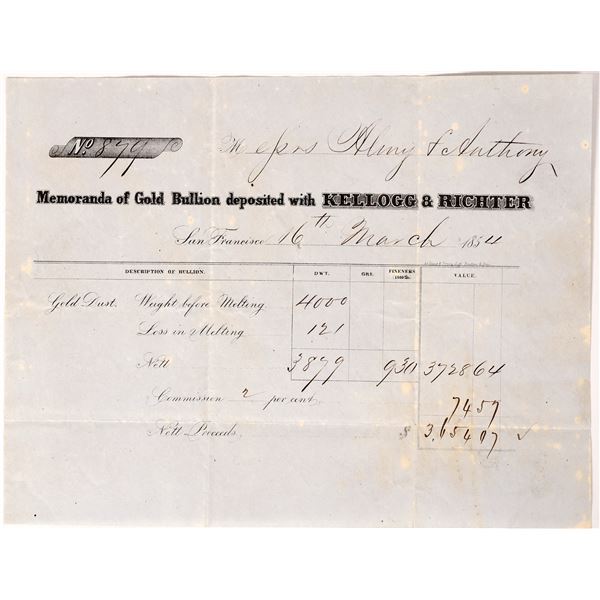 No. 879
Messrs Alvey & Anthony
Memoranda of Gold Bullion deposited with KELLOGG & RICHTER
San Francisco 16th March 1854
DESCRIPTION OF BULLION. DWT. GRS. FINENESS 1000ths. VALUE.
Gold Dust. Weight before Melting 4000
Loss in Melting 121
Nett 3879 930 3728 64
Commission 2 per cent. 74 57
Nett Proceeds, $ 3,654 07 ✓